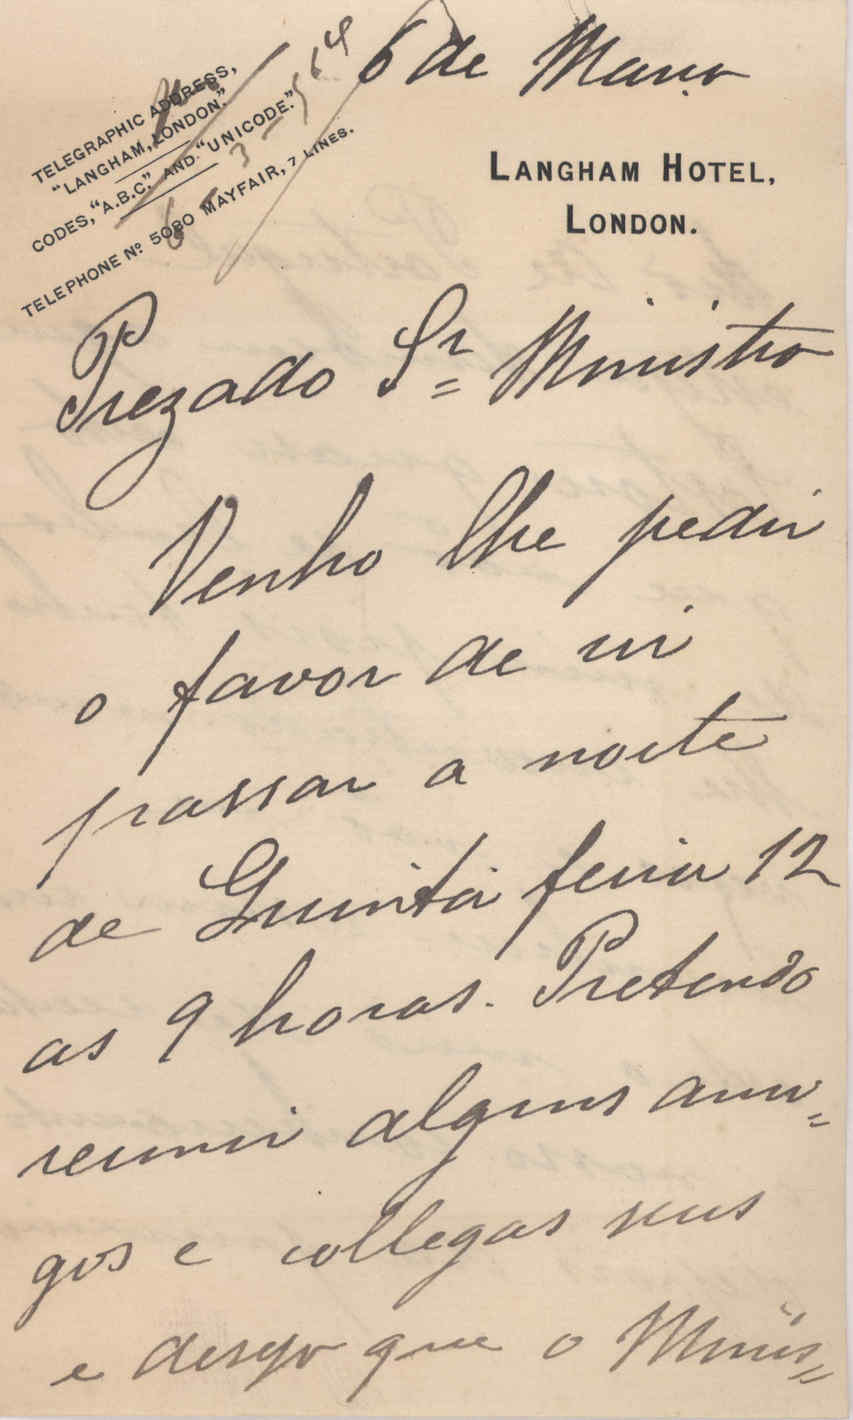 6 de Março
TELEGRAPHIC ADDRESS,
"LANGHAM, LONDON."
CODES, "A.B.C," AND "UNICODE."
TELEPHONE Nº 5080 MAYFAIR, 7 LINES.
LANGHAM HOTEL,
LONDON.
Prezado Sr. Ministro
Venho lhe pedir
o favor de vir
passar a noite
de Quinta feria 12
as 9 horas. Pretendo
reunir alguns ami=
gos e collegas seus
e desejo que o Minis=